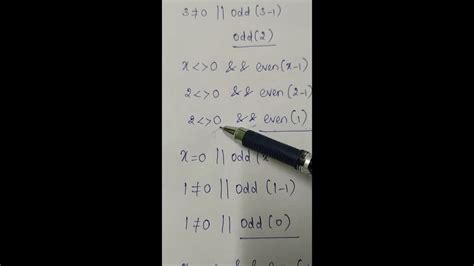 3≠0 || odd(3-1)
odd(2)
x<>0 && even(x-1)
2<>0 && even(2-1)
2<>0 && even(1)
x=0 || odd(
1≠0 || odd(1-1)
1≠0 || odd(0)